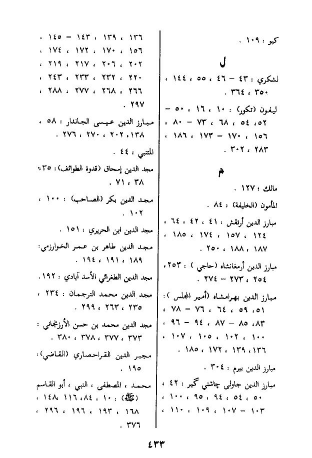 كيو : ١٠٩ .
ل
لشكري : ٤٣ - ٤٦ ، ٥٥ ، ١٤٤ ،
٣٥٠ ، ٣٦٤ .
ليفون (تكور) : ١٠ ، ١٦ ، ٥٠ -
٥٢، ٥٤ ، ٦٨ ، ٧٣ - ٨٠ ،
١٥٦ ، ١٧٠ - ١٧٣ ، ١٨٦ ،
٢٨٣ ، ٣٠٢ .
م
مالك : ١٢٧ .
المأمون (الخليفة) : ٨٤ .
مبارز الدين أرتقش : ٤١ ، ٤٢ ، ٦٤ ،
١٢٤ ، ١٥٧ ، ١٧٤ ، ١٨٥ ،
١٨٧ ، ١٨٨ ، ٢٥٠ .
مبارز الدين أرمغانشاه (حاجي) : ٢٥٣ ،
٢٥٤ ، ٢٧٣ - ٢٧٤ .
مبارز الدين بهرامشاه (أمير المجلس) :
٥١ ، ٥٩ ، ٦٤ ، ٧٦ - ٧٨ ،
٨٣ ، ٨٥ - ٨٧ ، ٩٤ - ٩٦ ،
١٠٠ ، ١٠٢ ، ١٠٥ ، ١٠٧ ،
١٣٦ ، ١٣٩ ، ١٧٢ ، ١٨٥ .
مبارز الدين بيرم : ٣٠٤ .
مبارز الدين جاولي چاشني گير : ٤٢ ،
٥٠ ، ٥٤ ، ٩٤ ، ٩٥ ، ١٠٠ ،
١٠٣ - ١٠٧ ، ١٠٩ ، ١١٠ ،
١٣٦ ، ١٣٩ ، ١٤٣ - ١٤٥ ،
١٥٦ ، ١٧٠ ، ١٧٢ ، ١٧٤ ،
٢٠٢ ، ٢٠٦ ، ٢١٧ ، ٢١٩ ،
٢٢٠ ، ٢٣٢ ، ٢٣٣ ، ٢٤٣ ،
٢٦٦ ، ٢٦٧ ، ٢٧٧ ، ٢٨٨ ،
٢٩٧ .
مبارز الدين عيسى الجاندار : ٥٨ ،
١٣٨، ٢٠٢ ، ٢٧٠ ، ٢٧٦ .
المتنبي : ٤٤ .
مجد الدين إسحاق (قدوة الطوائف) : ٣٥،
٣٨ ، ٧١ .
مجد الدين بكر (الصاحب) : ١٠٠ ،
١٠٢ .
مجد الدين ابن الحريري : ١٥١ .
مجد الدين طاهر بن عمر الخوارزمي :
١٨٩ ، ١٩١ ، ١٩٤ .
مجد الدين الطغرائي الأسد آبادي : ١٩٢ .
مجد الدين محمد الترجمان : ٢٣٤ ،
٢٣٥ ، ٢٦٣ ، ٢٩٩ .
مجد الدين محمد بن حسن الأرزنجاني :
٣٧٣ ، ٣٧٧ ، ٣٧٨ ، ٣٨٠ .
مجير الدين القراحصاري (القاضي) :
١٩٥ .
محمد ، المصطفى ، النبي ، أبو القاسم
(ﷺ) : ١٠ ، ٨٤ ، ١١٦ ، ١٤٨ ،
١٦٨ ، ١٩٣ ، ١٩٦ ، ٢٩٦ ،
٣٧٦ .
٤٣٣